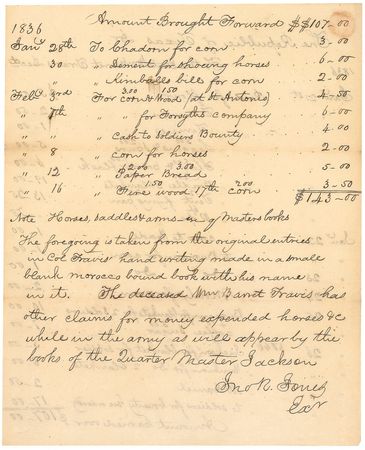 Amount Brought Forward $ $107-00
1836
Jany 28th To Chadorn for corn 3-00
" 30 " Dement for shoeing horses 6-00
" " Kimballs bill for corn 2-00
3.00 1.50
Feby 3rd For corn & Wood (at St Antonio) 4.50
" 7th " " for Forsyths company 6-00
" " cash to Soldiers Bounty 4.00
" 8 " corn for horses 2.00
2.00 3.00
" 12 " Paper Bread 5-00
1.50 2.00
" 16 " Fire wood 17th corn 3-50
$143-00
Note Horses, saddles & arms in q Masters books
The foregoing is taken from the original entries
in Col Travis' hand writing made in a small
blank morocco bound book with his name
in it. The deceased Wm Barret Travis has
other claims for money expended horses &c
while in the army as will appear by the
books of the Quarter Master Jackson
Jno R. Jones
Exr